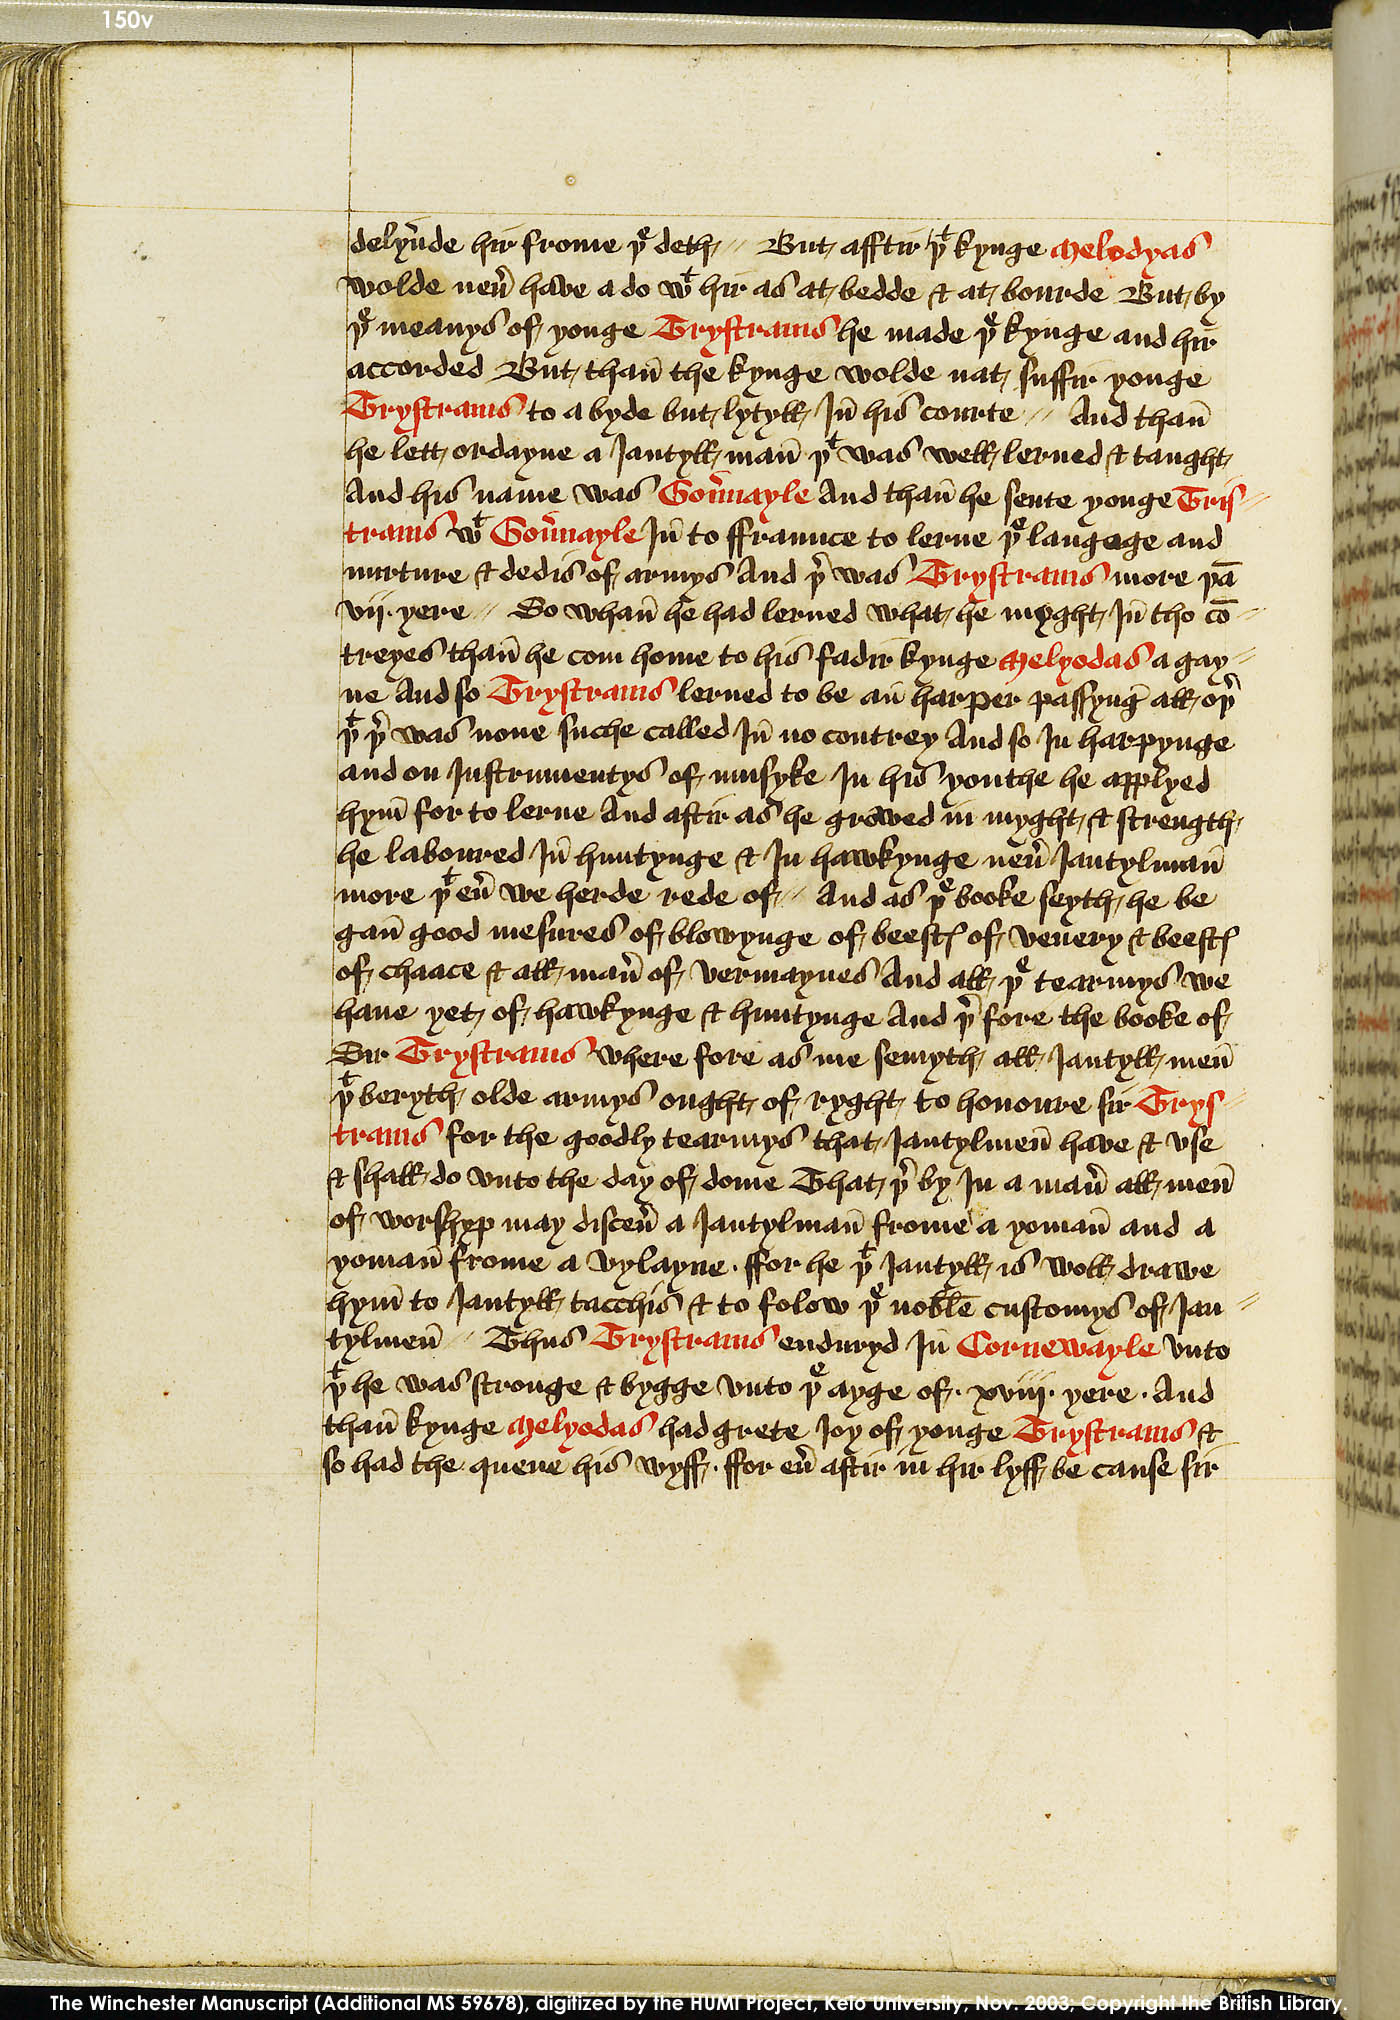 150v
delyũde hir frome þͤ deth // But afftir þͭ kynge Melodyas
wolde neũ have a do wͭ hir as at bedde & at bourde But by
þͤ meanys of yonge Trystrams he made þͤ kynge and hir
accorded But thañ the kynge wolde nat suffir yonge
Trystrams to a byde but lytyll Iñ his courte // And thañ
he lett ordayne a Jantyll mañ þͭ was well lerned & taught
And his name was Goũnayle And thañ he sente yonge Tris //
trams wͭ Goũnayle Iñ to ffraunce to lerne þͤ langage and
nurture & dedis of armys And þ̾ was Trystrams more þā
vij. yere // So whañ he had lerned what he myght Iñ tho cō //
treyes thañ he com home to his fadir kynge Melyodas a gay //
ne And so Trystrams lerned to be añ harper passyng̃ all oþ̾
þͭ þ̾ was none suche called Iñ no contrey And so In harpynge
and on Instrumentys of musyke In his youthe he applyed
hym̃ for to lerne And aftir as he growed in myght & strength
he laboured Iñ huntynge & In hawkynge neũ Jantylmañ
more þͭ eũ we herde rede of // And as þͤ booke seyth he be
gañ good mesures of blowynge of beestꝭ of venery & beestꝭ
of chaace & all mañ of vermaynes And all þͤ tearmys we
haue yet of hawkynge & huntynge And þ̾ fore the booke of
Sir Trystrams where fore as me semyth all Jantyll meñ
þͭ beryth olde armys ought of ryght to honoure sir Trys //
trams for the goodly tearmys that Jantylmeñ have & vse
& shall do vnto the day of dome That þ̾ by In a mañ all meñ
of worshyp may disceũ a Jantylmañ frome a yomañ and a
yomañ frome a vylayne . ffor he þͭ Jantyll is woll drawe
hym̃ to Jantyll tacchis & to folow þͤ noble customys of Jan //
tylmeñ // Thus Trystrams enduryd Iñ Cornewayle vnto
þͭ he was stronge & bygge vnto þͤ ayge of . xviij . yere . And
thañ kynge Melyodas had grete Joy of yonge Trystrams &
so had the quene his wyff . ffor eũ aftir in hir lyff be cause sir
The Winchester Manuscript (Additional MS 59678), digitized by the HUMI Project, Keio University, Nov. 2003; Copyright the British Library.